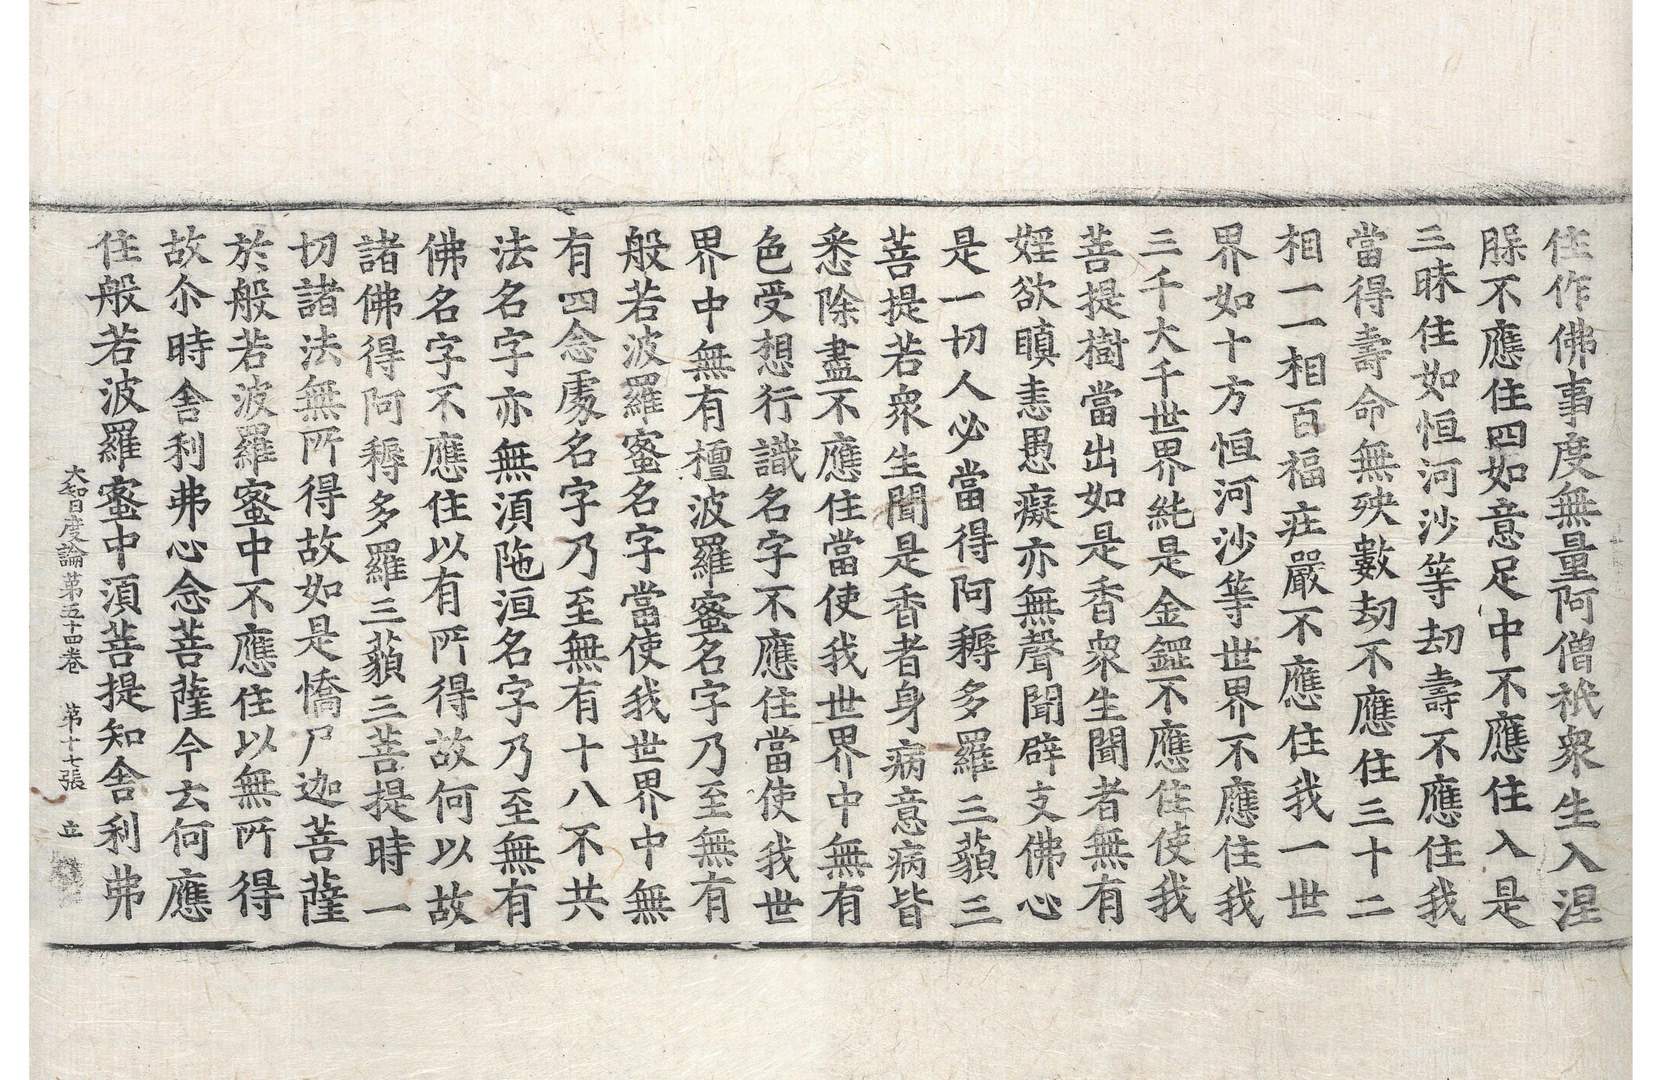 住作佛事度無量阿僧祇衆生入涅
臊不應住四如意足中不應住入是
三昧住如恒河沙等劫壽不應住我
當得壽命無殃數劫不應住三十二
相一一相百福庄嚴不應住我一世
界如十方恒河沙等世界不應住我
三千大千世界純是金𨮜不應住使我
菩提樹當出如是香衆生聞者無有
婬欲瞋恚愚癡亦無聲聞辟支佛心
是一切人必當得阿耨多羅三藐三
菩提若衆生聞是香者身病意病皆
悉除盡不應住當使我世界中無有
色受想行識名字不應住當使我世
界中無有檀波羅蜜名字乃至無有
般若波羅蜜名字當使我世界中無
有四念處名字乃至無有十八不共
法名字亦無湏陁洹名字乃至無有
佛名字不應住以有所得故何以故
諸佛得阿耨多羅三藐三菩提時一
切諸法無所得故如是憍尸迦菩薩
於般若波羅蜜中不應住以無所得
故尒時舍利弗心念菩薩今云何應
住般若波羅蜜中湏菩提知舍利弗
大智度論第五十四卷 第十七張 立